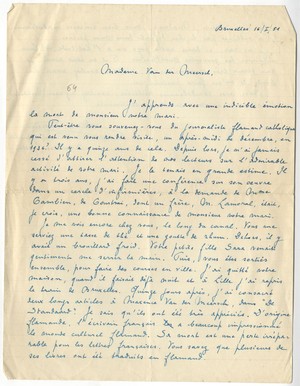 Bruxelles, 16/I/51
Madame Van der Meersch,
64
J'apprends avec une indicible émotion
la mort de monsieur votre mari.
Peut-être vous souvenez-vous du journaliste flamand catholique
qui est venu vous rendre visite, un après-midi de décembre, en
1935? Il y a quinze ans de cela. Depuis lors, je n'ai jamais
cessé d'attirer l'attention de mes lecteurs sur l'admirable
activité de votre mari. Je le tenais en grande estime. Il
y a trois ans, j'ai fait une conférence sur son œuvre
dans un cercle d'infirmières, à la demande de
de Courtrai, dont un frère, M. Lamoral, était,
je crois, une bonne connaissance de monsieur votre mari.
Je me vois encore chez vous, le long du canal. Vous me
servîtes une tasse de thé et une goutte de rhum. Dehors, il y
avait un brouillard froid. Votre petite fille Sara venait
gentiment me serrer la main. Puis, nous étions sorties
ensemble, pour faire des courses en ville. J'ai quitté votre
maison, quand il faisait déjà nuit et à Lille, j'ai repris
le train de Bruxelles. Quinze jours après, j'ai consacré
deux longs articles à Maxence Van der Meersch, dans "De
Standaard". Je sais qu'ils ont été bien appréciés. D'origine
flamande, l'écrivain français a beaucoup impressionné
le monde culturel flamand. Sa mort est une perte irrépa-
rable pour les lettres françaises. Vous savez que plusieurs de
ses livres ont été traduits en flamand.